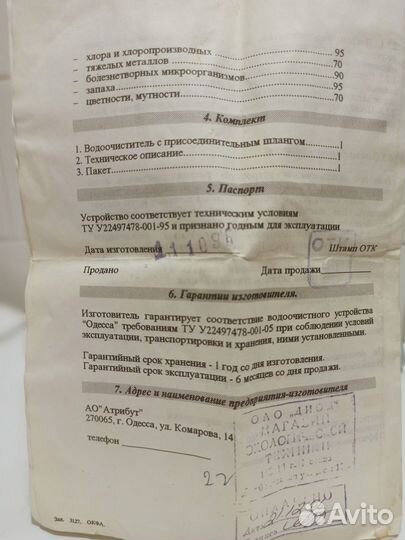 – хлора и хлоропроизводных 95
– тяжелых металлов 70
– болезнетворных микроорганизмов 90
– запаха 95
– цветности, мутности 70
4. Комплект
1. Водоочиститель с присоединительным шлангом 1
2. Техническое описание 1
3. Пакет 1
5. Паспорт
Устройство соответствует техническим условиям
ТУ У22497478-001-95 и признано годным для эксплуатации
Дата изготовления ОТК Штамп ОТК
Продано Дата продажи
6. Гарантии изготовителя.
Изготовитель гарантирует соответствие водоочистного устройства
"Одесса" требованиям ТУ У22497478-001-05 при соблюдении условий
эксплуатации, транспортировки и хранения, ними установленными.
Гарантийный срок хранения - 1 год со дня изготовления.
Гарантийный срок эксплуатации - 6 месяцев со дня продажи.
7. Адрес и наименование предприятия-изготовителя
АО"Атрибут"
270065, г. Одесса, ул. Комарова, 14
телефон
ОАО "ДИОД"
МАГАЗИН
ЭКОЛОГИЧЕСКОЙ
ТЕХНИКИ
22
Зак. 3127, ОКФА.
Avito